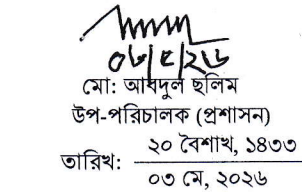 ০৩/৫/২৬
মো: আবদুল ছলিম
উপ-পরিচালক (প্রশাসন)
তারিখ: ২০ বৈশাখ, ১৪৩৩
০৩ মে, ২০২৬